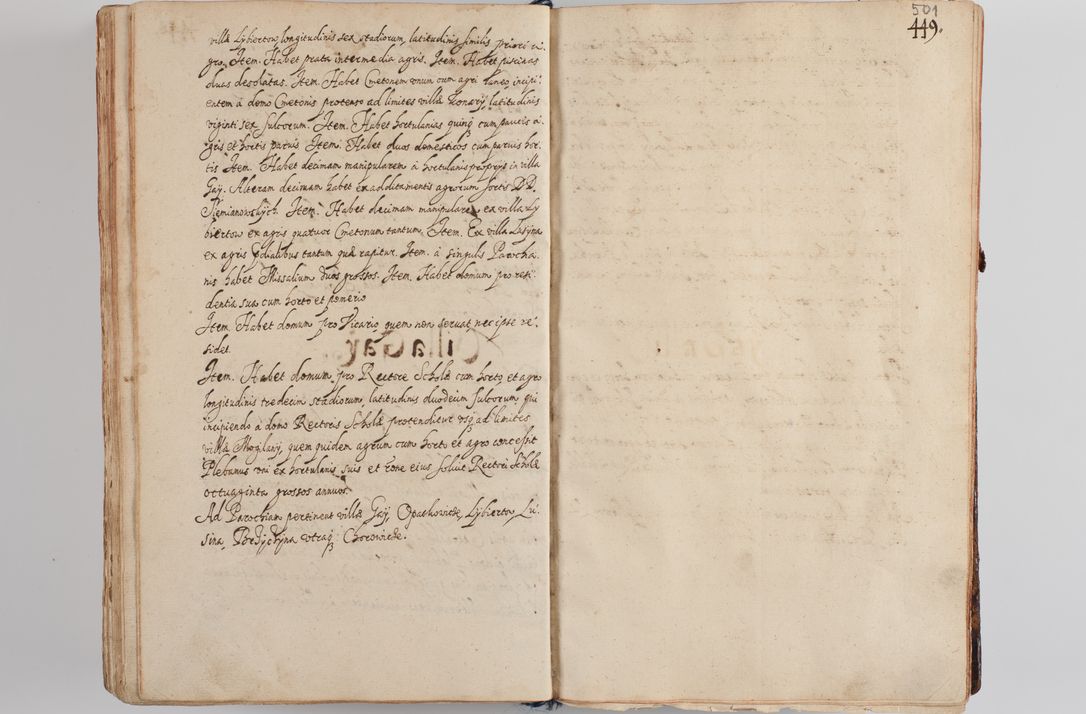 villæ Lybiertow, longitudinis sex stadiorum, latitudinis similis priori a-
gro, Item. Habet prata intermedia agris. Item. Habet piscinas
duas desolatas. Item. Habet Cmetonem unum cum agri laneo, incipi-
entem à domo Cmetonis protenso ad limites villæ Konary, latitudinis
viginti sex sulcorum. Item. Habet hortulanias quinq cum parvis a-
gris et hortis parvis Item. Habet duos domesticos cum parvis hor-
tis Item. Habet decimam manipularem à hortulanis proprys in villa
Gaÿ. Alteram decimam habet ex additamentis agrorum sortis DD.
Siemianowskÿch. Item. Habet decimam manipularem ex villa Ly
biertow ex agris quatuor Cmetonum tantum. Item. Ex villa Lusyna
ex agris tantum quæ rapitur. Item. à singulis Parocha
nis habet Missalium duos grossos. Item. Habet domum pro resi-
dentia sua cum horto et pomerio
Item. Habet domum pro Vicario, quem non servat nec ipse re-
sidet.
Item. Habet domum pro Rectore Scholæ cum horto et agro
longitudinis tredecim stadiorum, latitudinis duodecim sulcorum, qui
incipiendo à domo Rectoris Scholæ protenditur usq ad limites
villæ Mogilany, quem quidem agrum cum horto et agro concessit
Plebanus uni ex hortulanis suis et eius soluit Rectori Scholæ
octuaginta grossos annuos.
Ad Parochiam pertinent villæ Gaÿ, Opatkowicze, Lybiertow, Lu-
sina, utraq Chorowicze.
501
449.